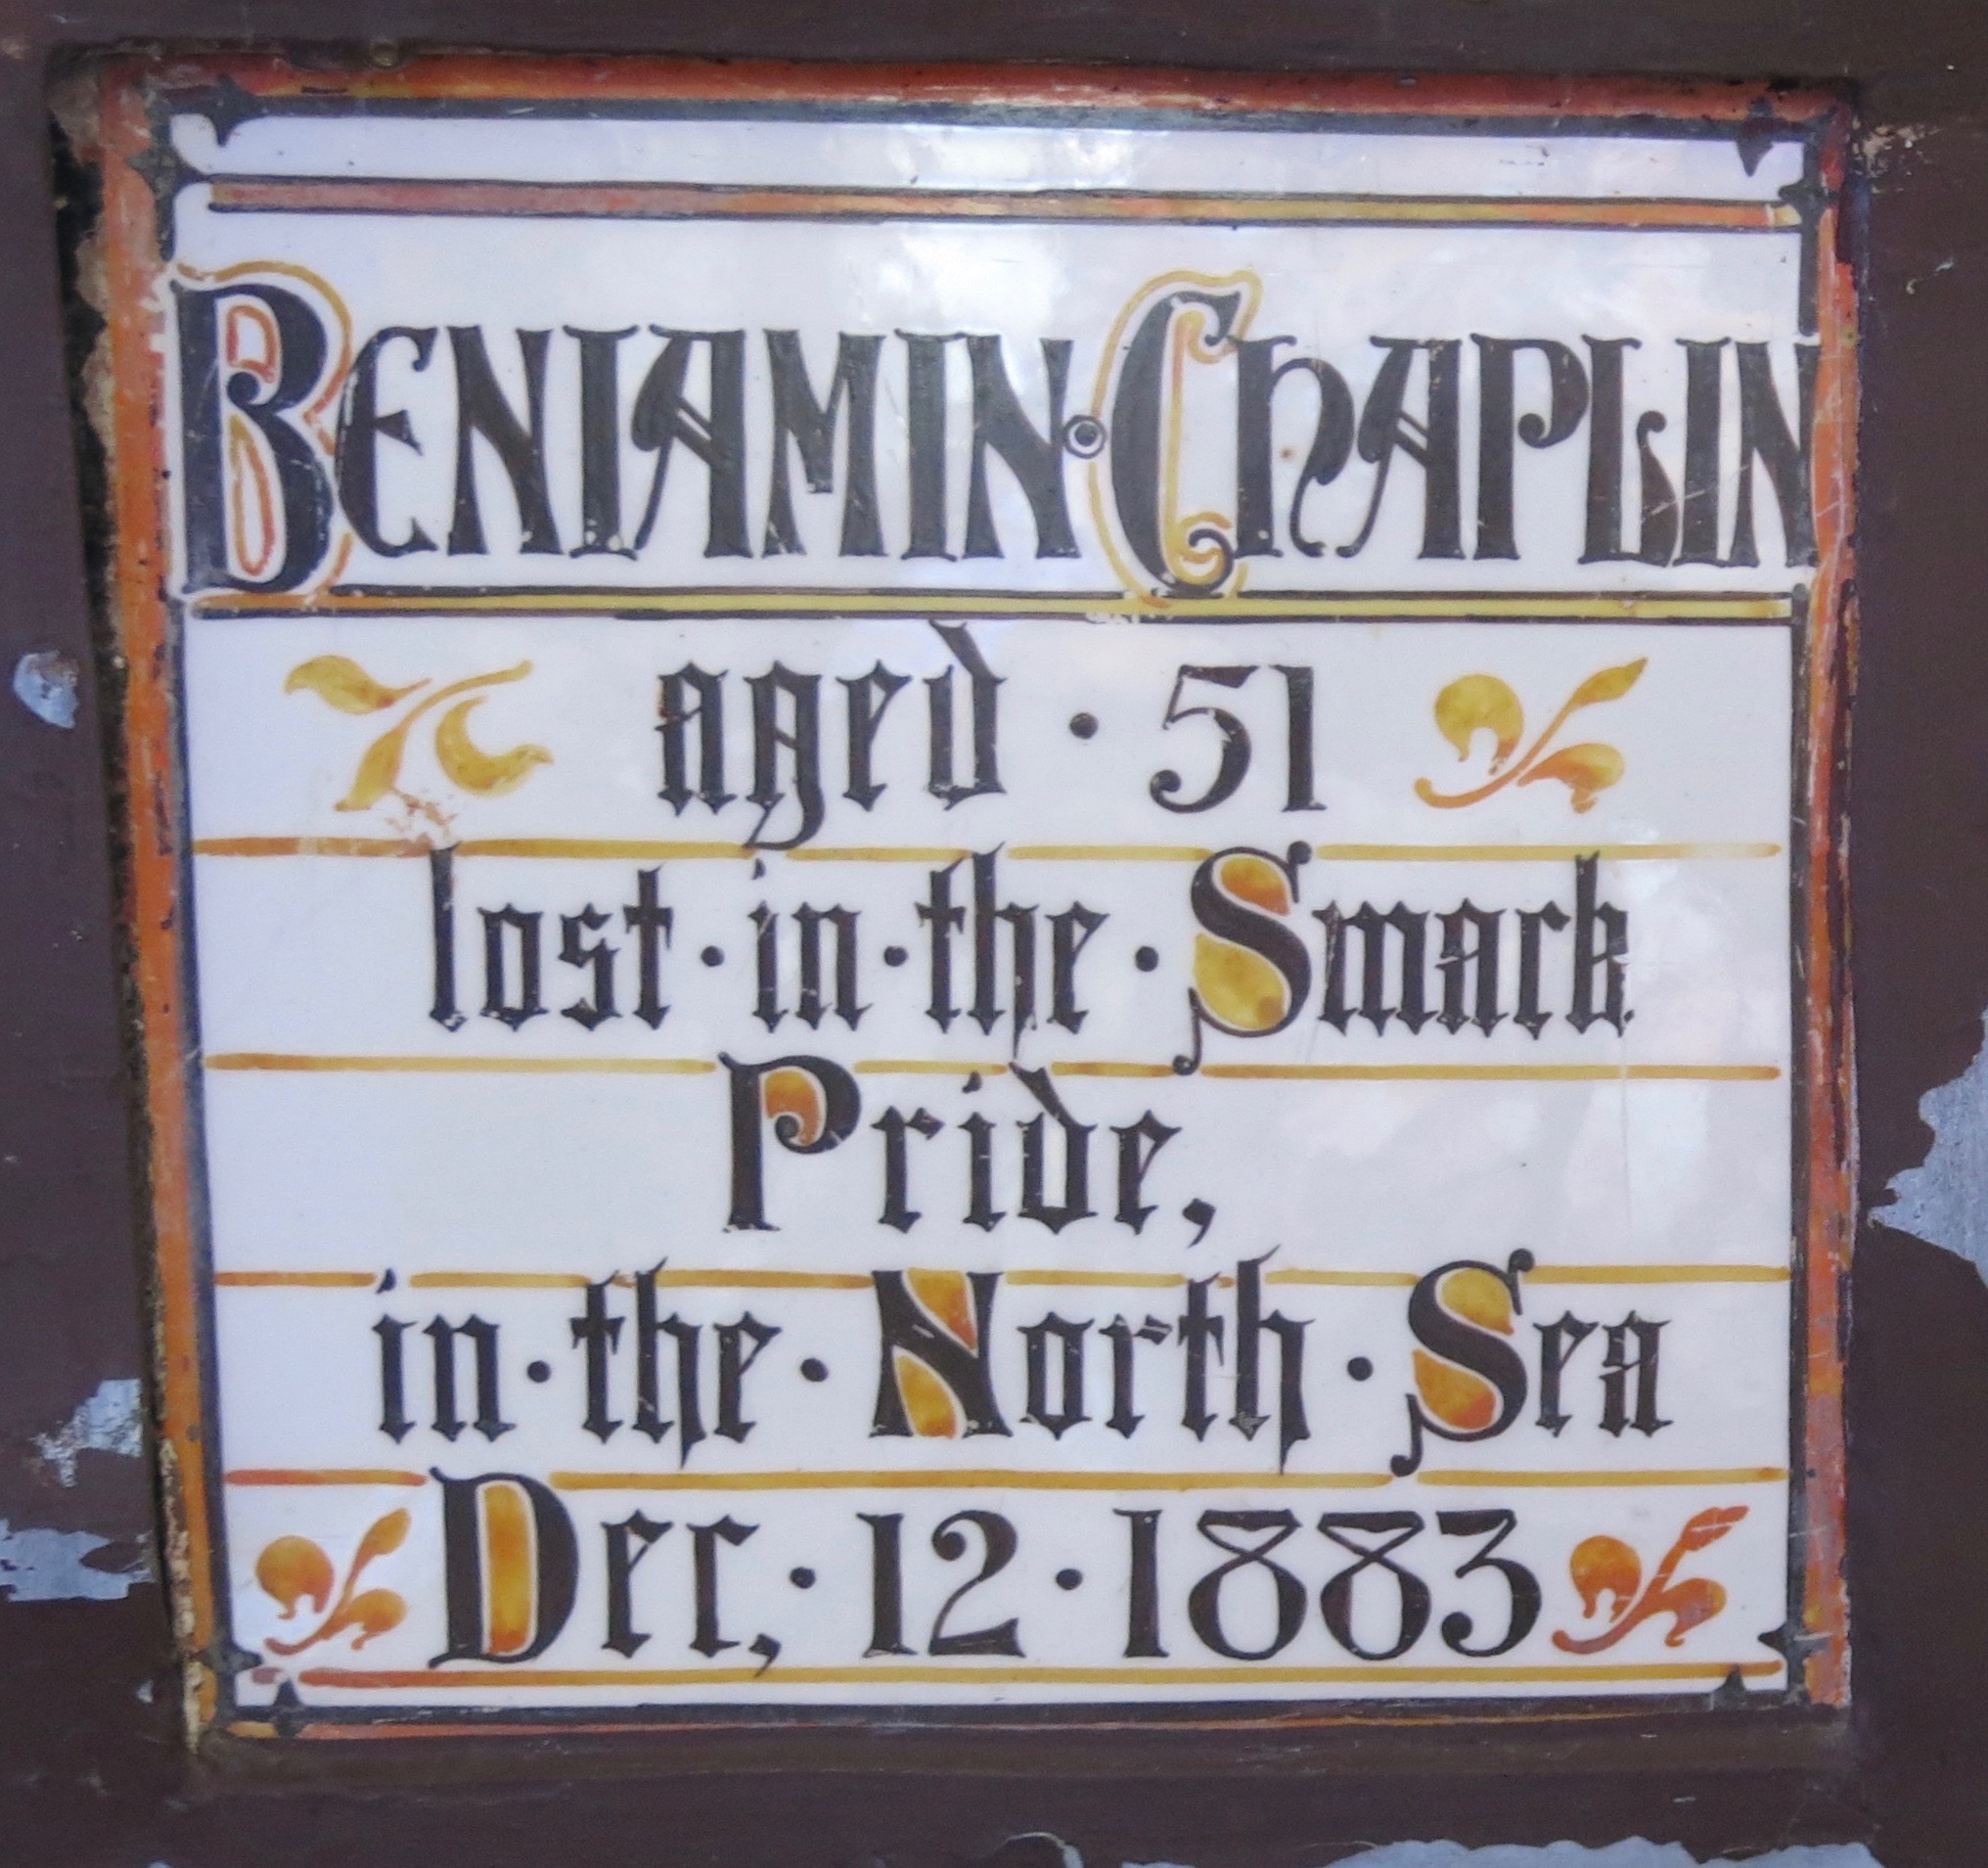 BENIAMIN·ChAPLIN
aged · 51
lost · in · the · Smack
Pride,
in · the · North · Sea
Dec, · 12 · 1883